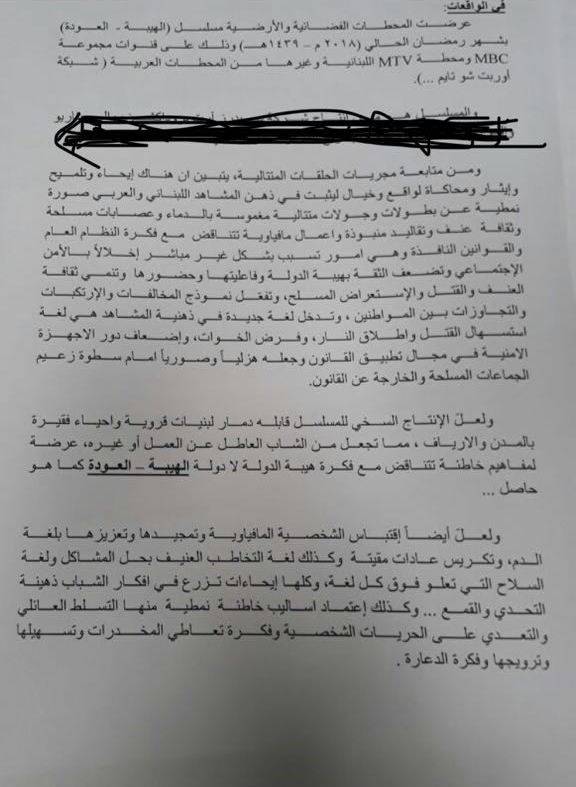 في الواقعات:
عرضت المحطات الفضائية والأرضية مسلسل (الهيبة - العودة)
بشهر رمضان الحالي (٢٠١٨ م – ١٤٣٩هـ) وذلك على قنوات مجموعة
MBC ومحطة MTV اللبنانية وغيرها من المحطات العربية ( شبكة
أوربت شو تايم ...).
والمسلسل
ومن متابعة مجريات الحلقات المتتالية، يتبين ان هناك إيحاء وتلميح
وإيثار ومحاكاة لواقع وخيال ليثبت في ذهن المشاهد اللبناني والعربي صورة
نمطية عن بطولات وجولات متتالية مغموسة بالدماء وعصابات مسلحة
وثقافة عنف وتقاليد منبوذة واعمال مافياوية تتناقض مع فكرة النظام العام
والقوانين النافذة وهي امور تسبب بشكل غير مباشر إخلالاً بالأمن
الإجتماعي وتضعف الثقة بهيبة الدولة وفاعليتها وحضورها وتنمي ثقافة
العنف والقتل والإستعراض المسلح، وتفعّل نموذج المخالفات والإرتكبات
والتجاوزات بين المواطنين ، وتدخل لغة جديدة في ذهنية المشاهد هي لغة
استسهال القتل واطلاق النار، وفرض الخوات، وإضعاف دور الاجهزة
الامنية في مجال تطبيق القانون وجعله هزلياً وصورياً امام سطوة زعيم
الجماعات المسلحة والخارجة عن القانون.
ولعلّ الإنتاج السخي للمسلسل قابله دمار لبنيات قروية واحياء فقيرة
بالمدن والارياف ، مما تجعل من الشاب العاطل عن العمل أو غيره، عرضة
لمفاهيم خاطئة تتناقض مع فكرة هيبة الدولة لا دولة الهيبة – العودة كما هو
حاصل ...
ولعلّ أيضاً إقتباس الشخصية المافياوية وتمجيدها وتعزيزها بلغة
الدم، وتكريس عادات مقيتة وكذلك لغة التخاطب العنيف بحل المشاكل ولغة
السلاح التي تعلو فوق كل لغة، وكلها إيحاءات تزرع في افكار الشباب ذهنية
التحدي والقمع ... وكذلك إعتماد اساليب خاطئة نمطية منها التسلط العائلي
والتعدي على الحريات الشخصية وفكرة تعاطي المخدرات وتسهيلها
وترويجها وفكرة الدعارة .